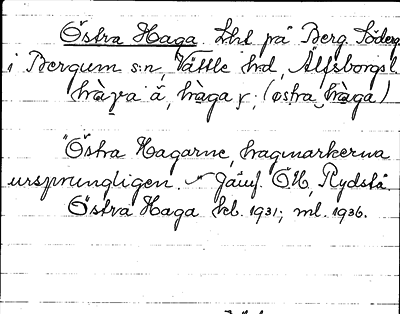 Östra Haga Lht på Berg, Söderg.
i Bergum s:n, Vättle hd, Älfsborgs l.
hàga å, hàga, (østra hàga)
"Östra Hagarne, hagmarkerna
ursprungligen. - Jämf. ÖH, Rydstä
Östra Haga kb. 1931; ml. 1936.